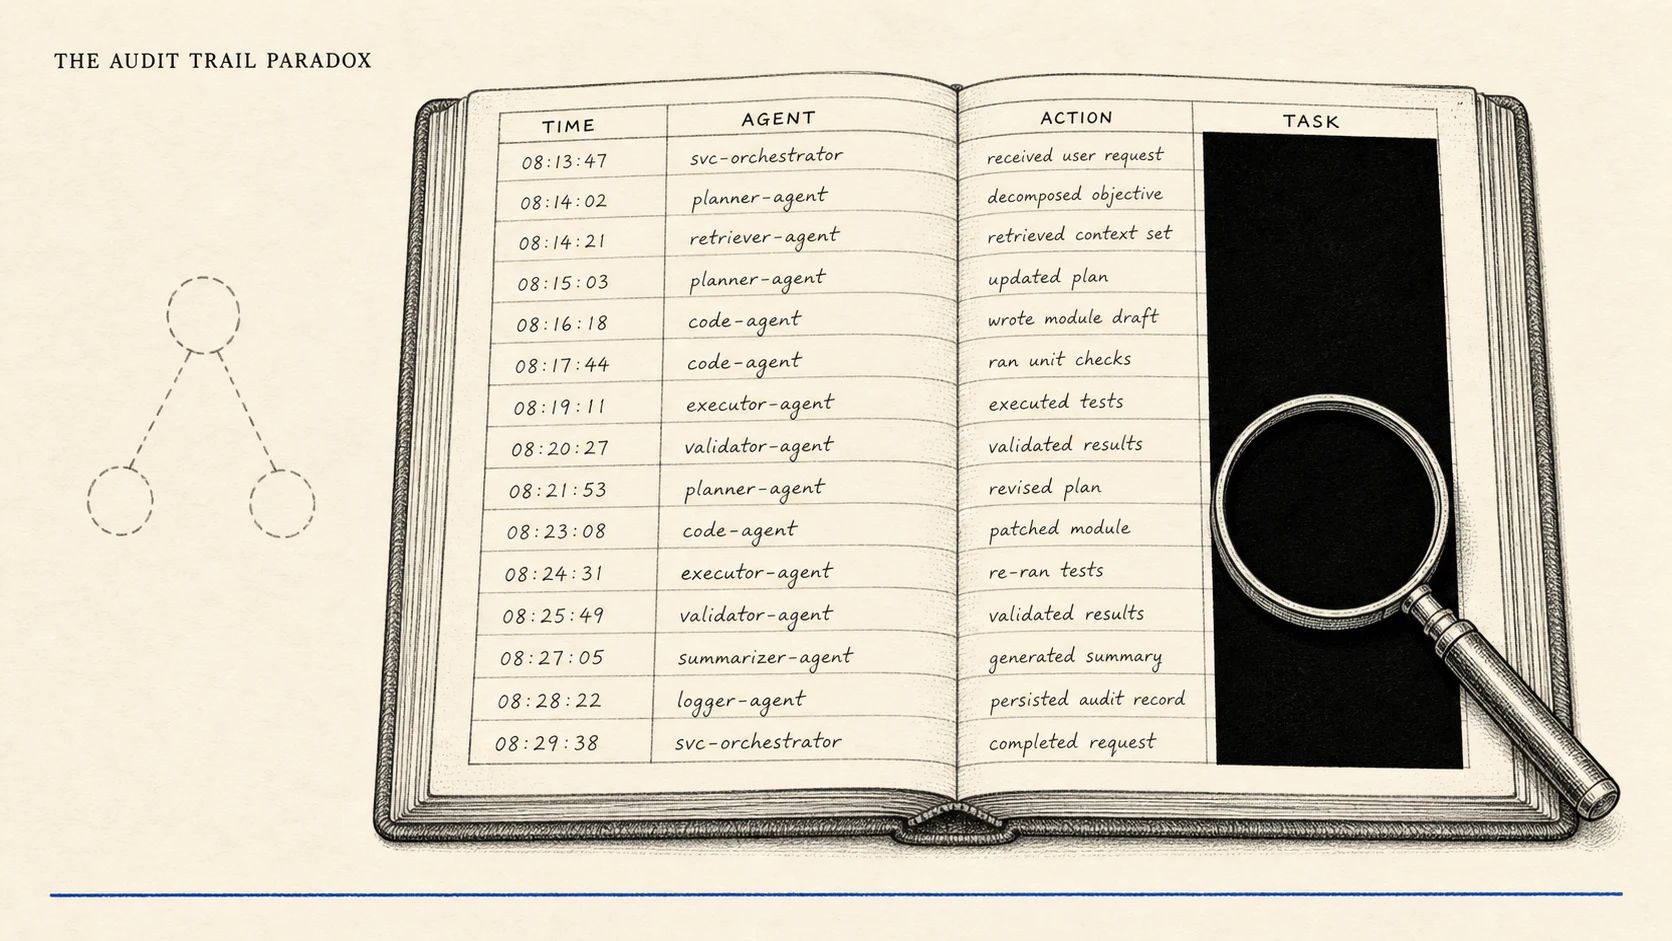 THE AUDIT TRAIL PARADOX
TIME AGENT ACTION TASK
08:13:47 svc-orchestrator received user request
08:14:02 planner-agent decomposed objective
08:14:21 retriever-agent retrieved context set
08:15:03 planner-agent updated plan
08:16:18 code-agent wrote module draft
08:17:44 code-agent ran unit checks
08:19:11 executor-agent executed tests
08:20:27 validator-agent validated results
08:21:53 planner-agent revised plan
08:23:08 code-agent patched module
08:24:31 executor-agent re-ran tests
08:25:49 validator-agent validated results
08:27:05 summarizer-agent generated summary
08:28:22 logger-agent persisted audit record
08:29:38 svc-orchestrator completed request